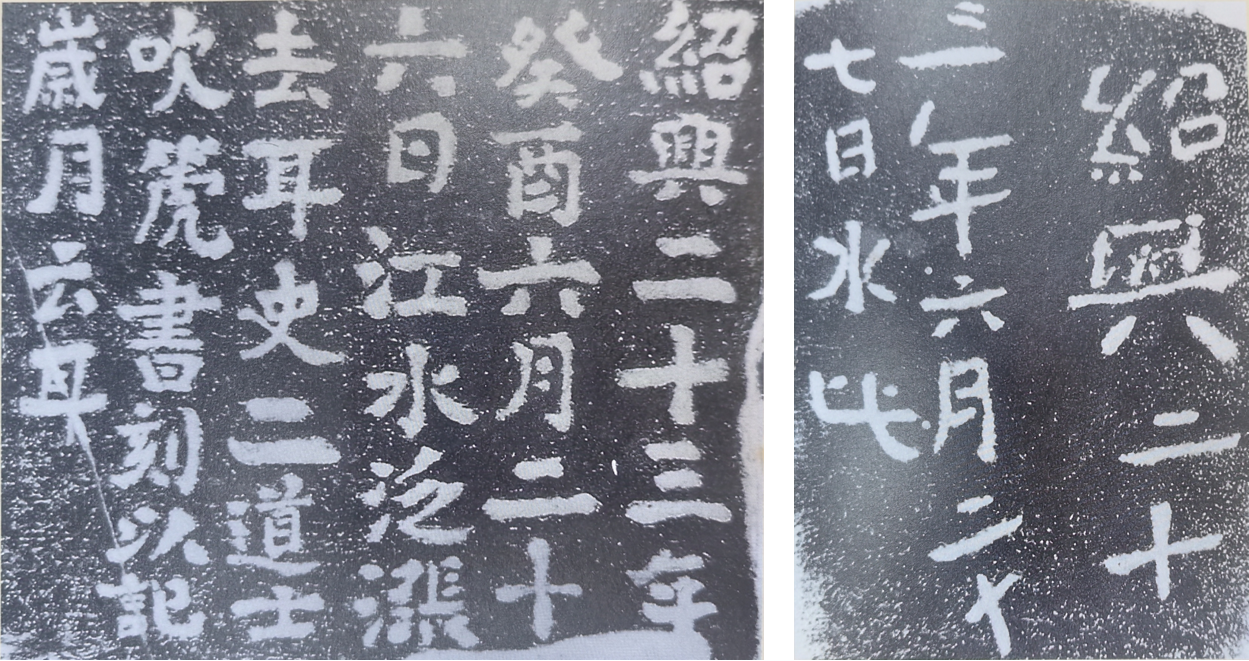 紹興二十三年
癸酉六月二十
六日江水泛漲
去耳史二道士
吹篪書刻以記
歲月云耳
紹興二十
三年六月二十
七日水此